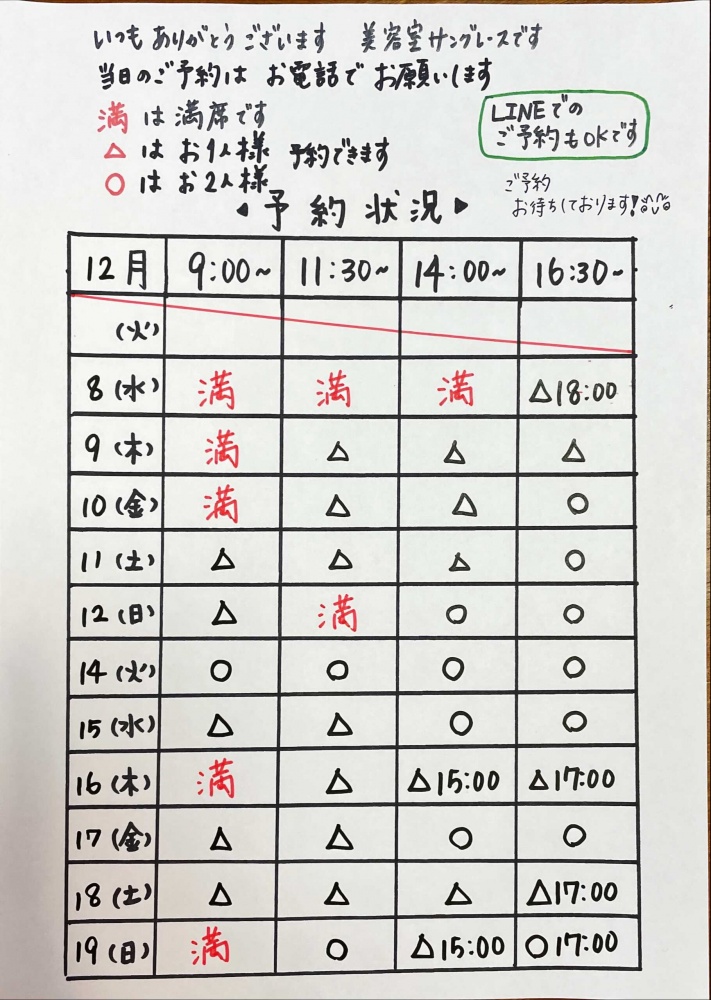 いつもありがとうございます 美容室サングレースです
当日のご予約は お電話で お願いします
満 は 満席です
△ は お1人様 予約できます
○ は お2人様
LINEでの
ご予約もOKです
ご予約
お待ちしております!
◀予約状況▶
12月 9:00~ 11:30~ 14:00~ 16:30~
(火)
8(水) 満 満 満 △18:00
9(木) 満 △ △ △
10(金) 満 △ △ ○
11(土) △ △ △ ○
12(日) △ 満 ○ ○
14(火) ○ ○ ○ ○
15(水) △ △ ○ ○
16(木) 満 △ △15:00 △17:00
17(金) △ △ ○ ○
18(土) △ △ △ △17:00
19(日) 満 ○ △15:00 ○17:00